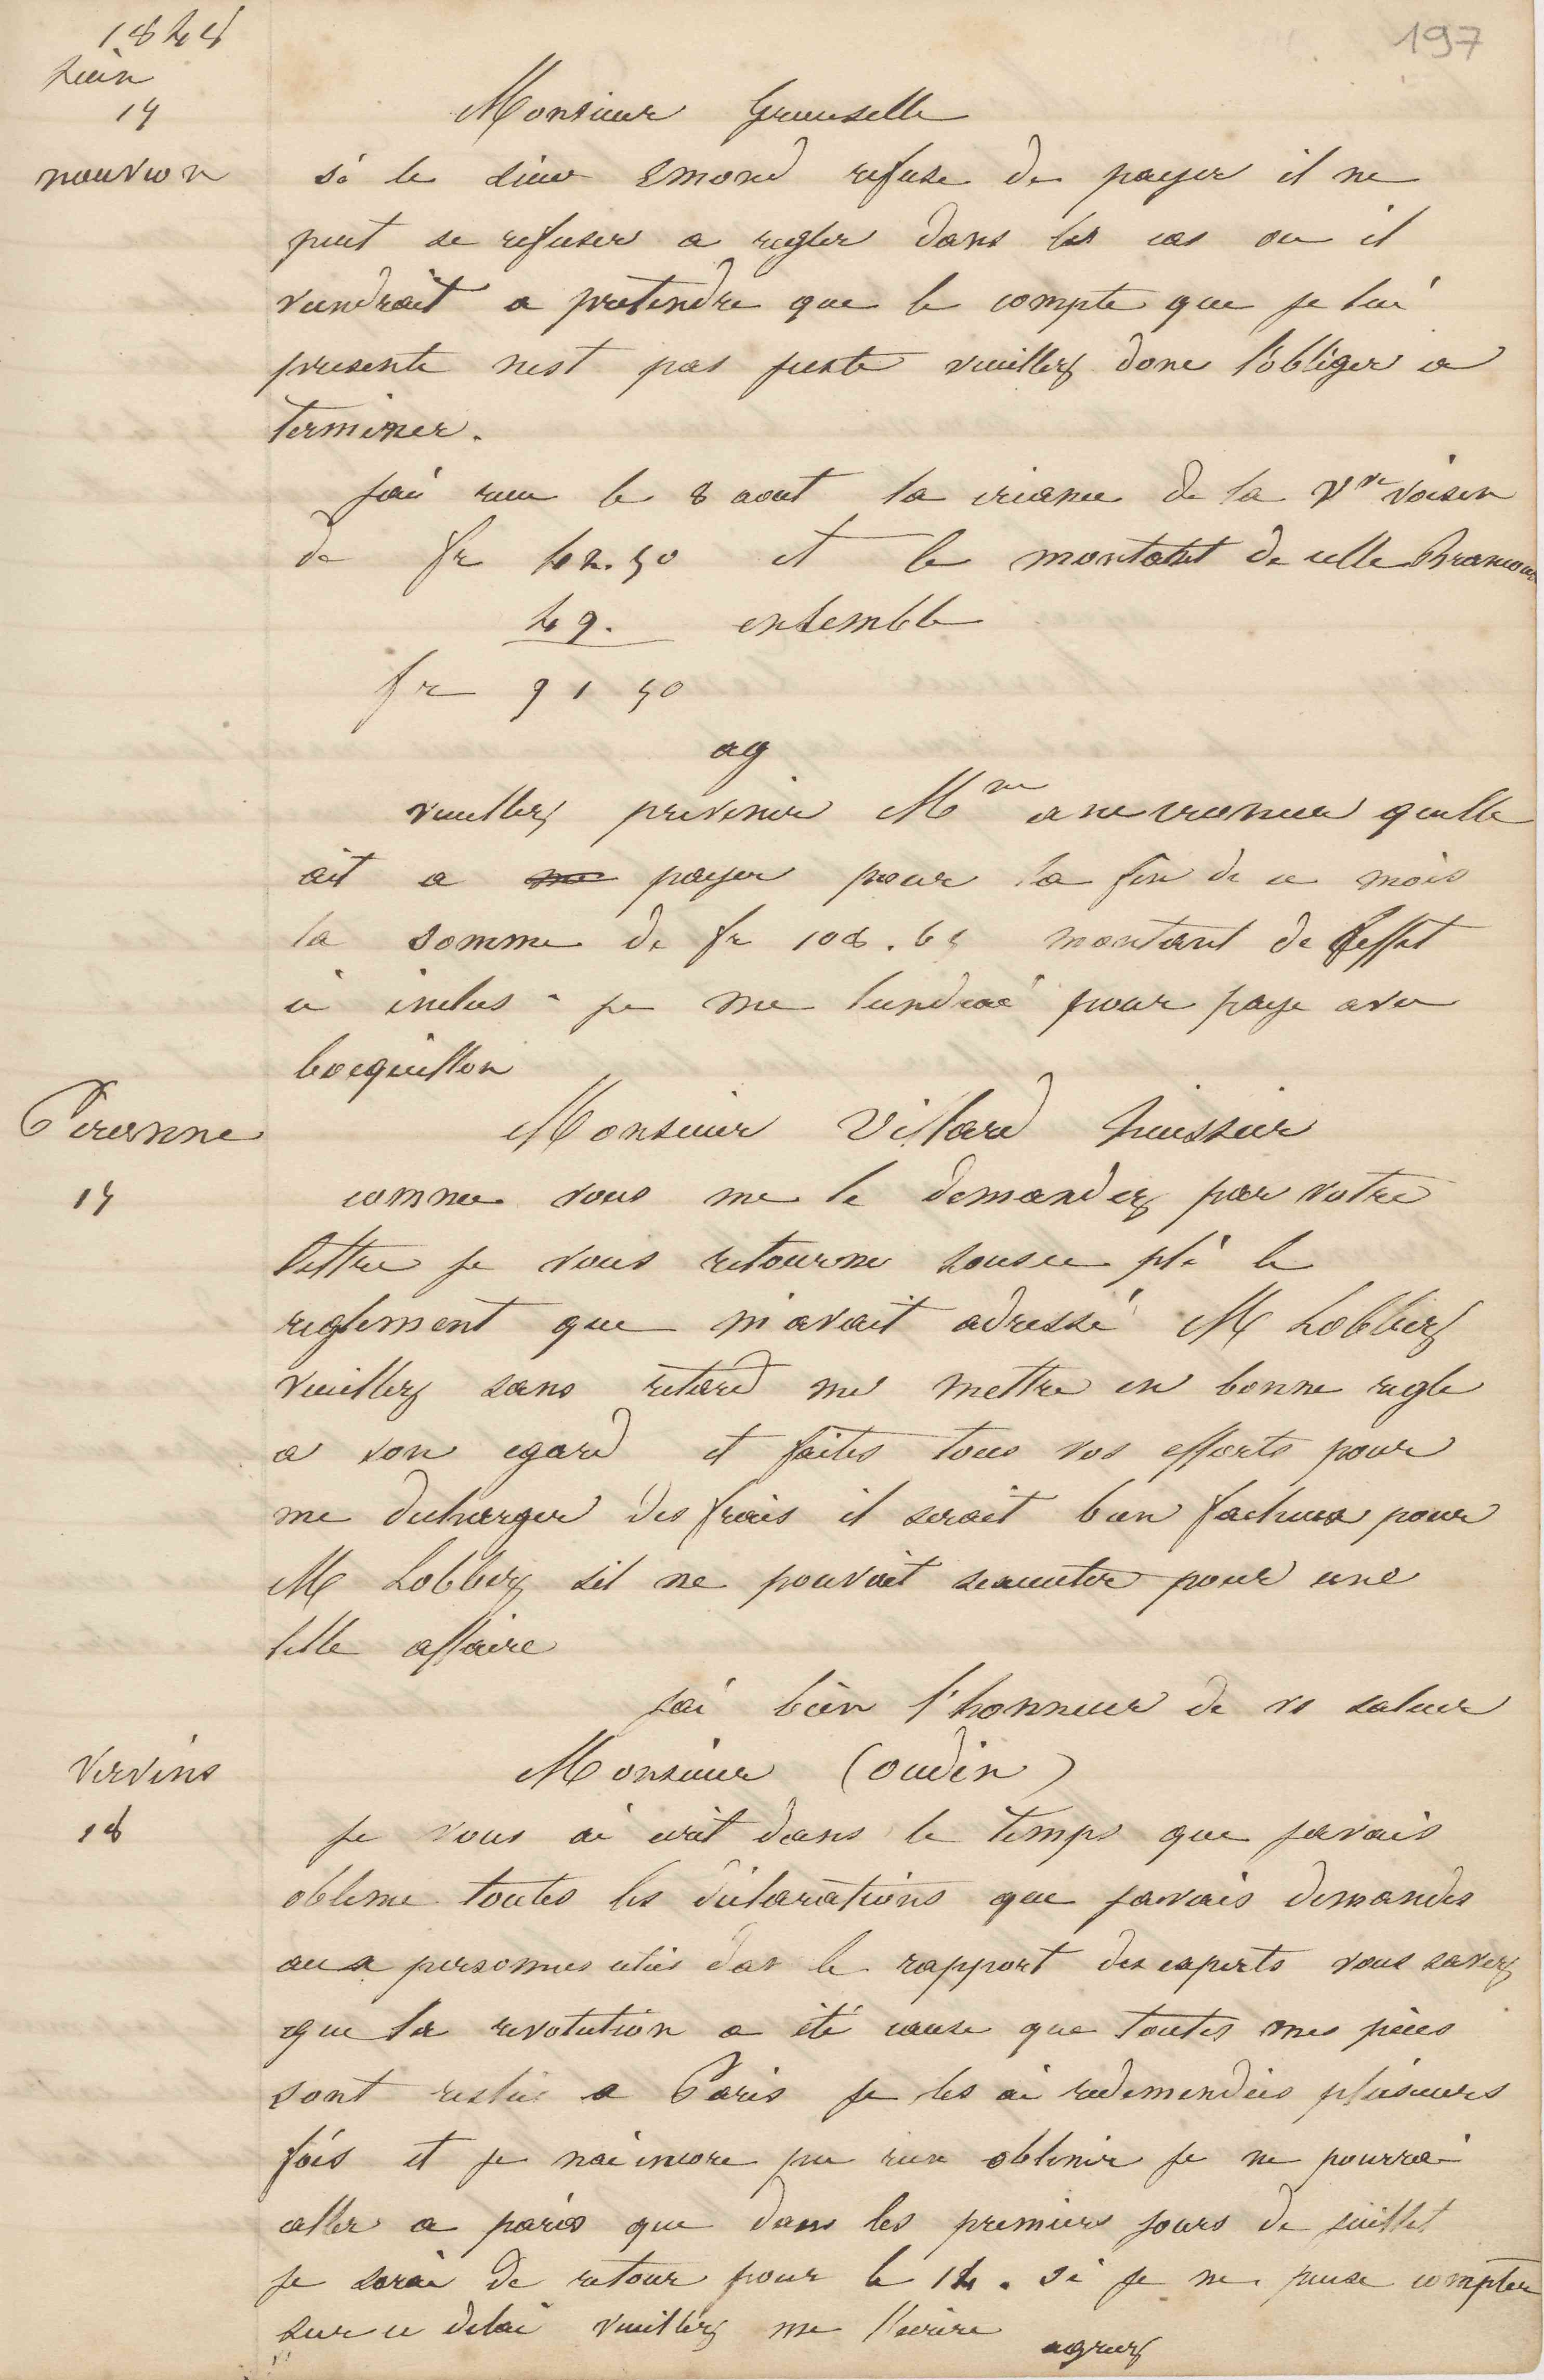 1848
197
Juin
15
Monsieur Grumselle
nouvion
si le sieur Emond refuse de payer il ne
peut se refuser a regler dans les cas ou il
viendrait a pretendre que le compte que je lui
presente nest pas juste veuillez donc l'obliger a
terminer.
jai recu le 8 aout la creance de la Vve Voisin
de fr 42.50 et le montatst de celle
49. ensemble
fr 91 50
ag
veuillez prevenir Mme quelle
ait a payer pour la fin de ce mois
la somme de fr 108.65 montant de l'effet
ci inclus. je me tiendrai pour paye avec
bocquillon
Peronne
Monsieur Villard huissier
15
comme vous me le demandez par votre
lettre je vous retourne sousce pli le
reglement que m'avait adressé M Lobbez
veuillez sans retard me mettre en bonne regle
a son egard et faites tous vos efforts pour
me decharger des frais il serait bien facheux pour
M Lobbez sil ne pouvait sexecuter pour une
telle affaire
jai bien l'honneur de vs saluer
Vervins
Monsieur (oudin)
18
je vous ai ecrit dans le temps que javais
obtenu toutes les déclarations que javais demandes
aux personnes citées dan le rapport des experts vous savez
que la revolution a été cause que toutes mes pieces
sont restées a Paris je les ai redemendées plusieurs
fois et je nai encore pu rien obtenir je ne pourrai
aller a paris que dans les premiers jours de juillet
je serai de retour pour le 14. si je ne puise compter
sur ce delai veuillez me l'ecrire
agreez